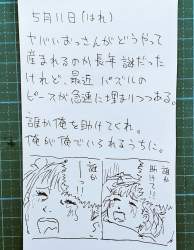 5月11日(はれ)
ヤバいおっさんがどうやって
産まれるのか長年謎だった
けれど、最近パズルの
ピースが急速に埋まりつつある。
誰か俺を助けてくれ。
俺が俺でいれるうちに。
誰か
誰か
助けて